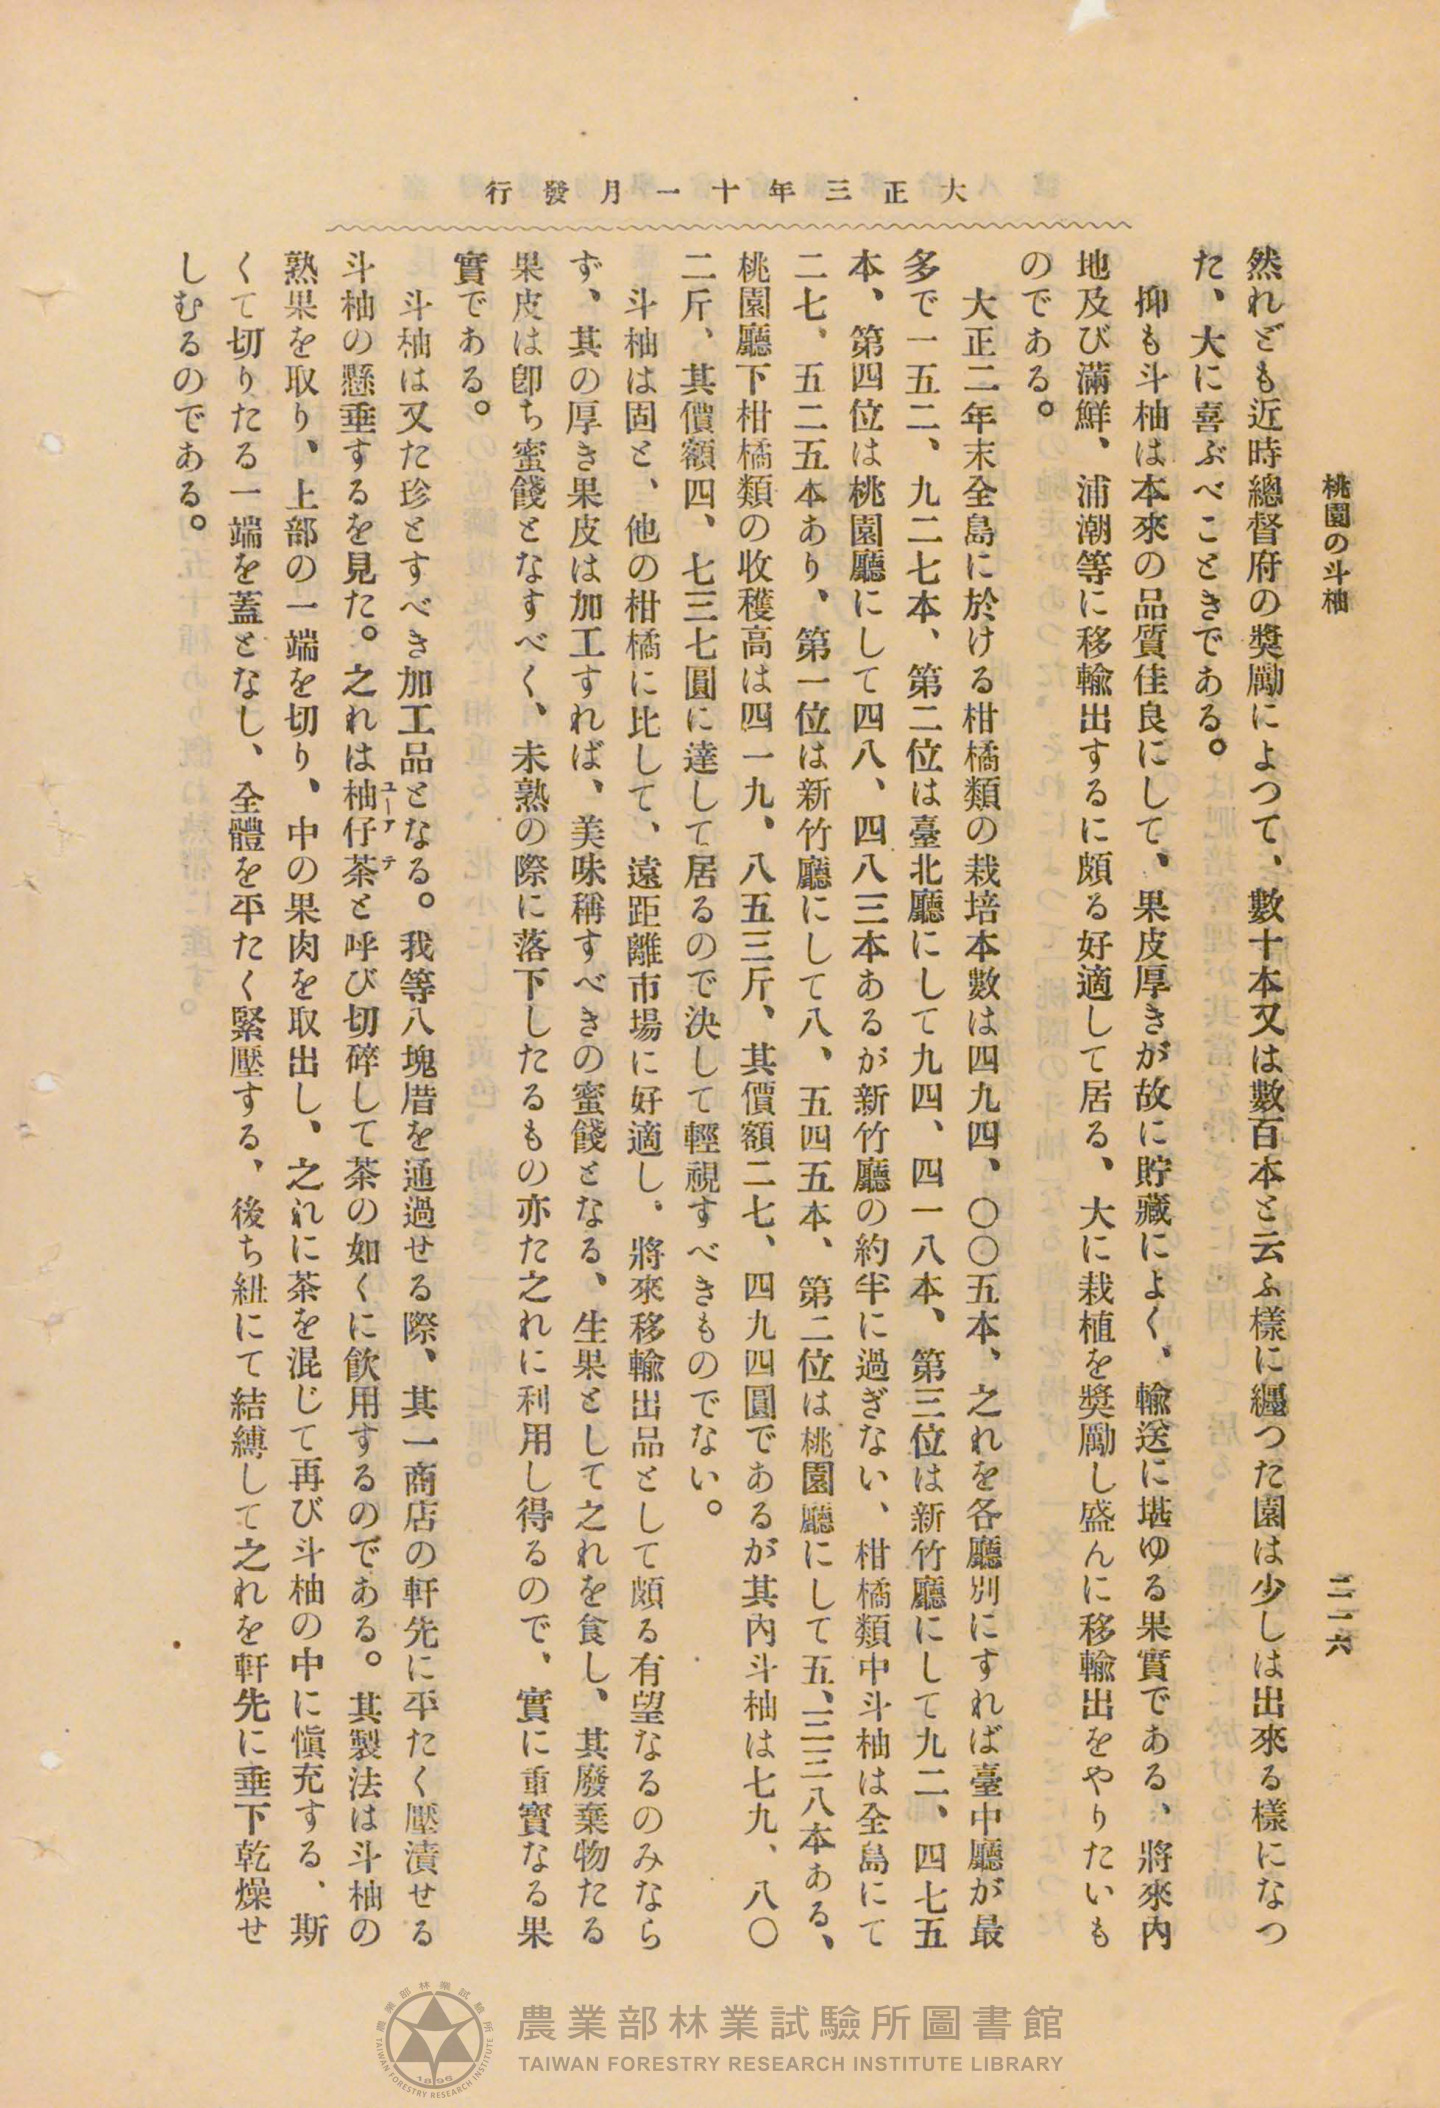 大正三年十一月發行
桃園の斗柚
二一六
然れども近時總督府の奬勵によつて、數十本又は數百本と云ふ樣に纒つた園は少しは出來る樣になつ
た、大に喜ぶべこときである。
抑も斗柚は本來の品質佳良にして、果皮厚きが故に貯藏によく、輸送に堪ゆる果實である、將來內
地及び滿鮮、浦潮等に移輸出するに頗る好適して居る、大に栽植を奬勵し盛んに移輸出をやりたいも
のである。
大正二年末全島に於ける柑橘類の栽培本數は四九四、〇〇五本、之れを各廳別にすれば臺中廳が最
多で一五二、九二七本、第二位は臺北廳にして九四、四一八本、第三位は新竹廳にして九二、四七五
本、第四位は桃園廳にして四八、四八三本あるが新竹廳の約半に過ぎない、柑橘類中斗柚は全島にて
二七、五二五本あり、第一位は新竹廳にして八、五四五本、第二位は桃園廳にして五、三三八本ある、
桃園廳下柑橘類の收穫高は四一九、八五三斤、其價額二七、四九四圓であるが其內斗柚は七九、八〇
二斤、其價額四、七三七圓に達して居るので決して輕視すべきものでない。
斗柚は固と、他の柑橘に比して、遠距離市場に好適し、將來移輸出品として頗る有望なるのみなら
ず、其の厚き果皮は加工すれば、美味稱すべきの蜜餞となる、生果として之れを食し、其廢棄物たる
果皮は卽ち蜜餞となすべく、未熟の際に落下したるもの亦た之れに利用し得るので、實に重寶なる果
實である。
斗柚は又た珍とすべき加工品となる。我等八塊厝を通過せる際、其一商店の軒先に平たく壓漬せる
斗柚の懸垂するを見た。之れは柚仔茶と呼び切碎して茶の如くに飮用するのである。其製法は斗柚の
ユーアテ
熟果を取り、上部の一端を切り、中の果肉を取出し、之れに茶を混じて再び斗柚の中に愼充する、斯
くて切りたる一端を蓋となし、全體を平たく緊壓する、後ち紐にて結縛して之れを軒先に垂下乾燥せ
しむるのである。
農業部林業試驗所圖書館
TAIWAN FORESTRY RESEARCH INSTITUTE LIBRARY
農業部林業試驗所
1896
TAIWAN FORESTRY RESEARCH INSTITUTE